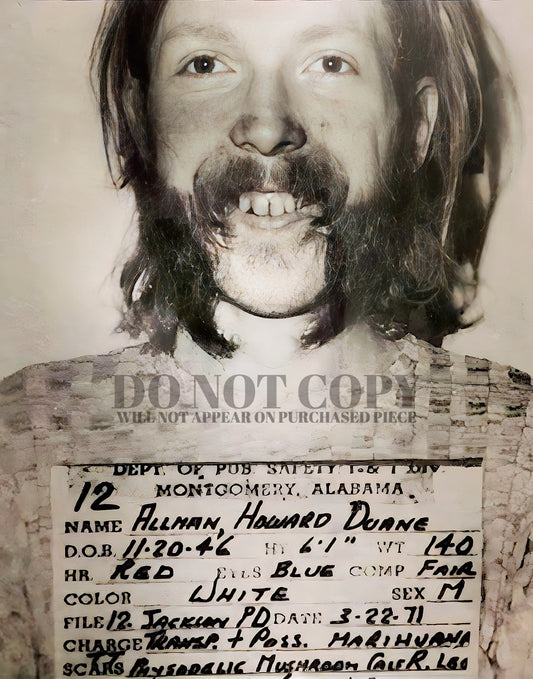 DO NOT COPY
WILL NOT APPEAR ON PURCHASED PIECE
DEPT. OF PUB. SAFETY I. & I DIV
12 MONTGOMERY, ALABAMA.
NAME ALLMAN, HOWARD DUANE
D.O.B. 11-20-46 HT 6'1" WT 140
HR. RED EYES BLUE COMP FAIR
COLOR WHITE SEX M
FILE 12. JACKSON PD DATE 3-22-71
CHARGE TRANSP. + POSS. MARIHUANA
SCARS PHYSADELIC MUSHROOM CALF R. LEG